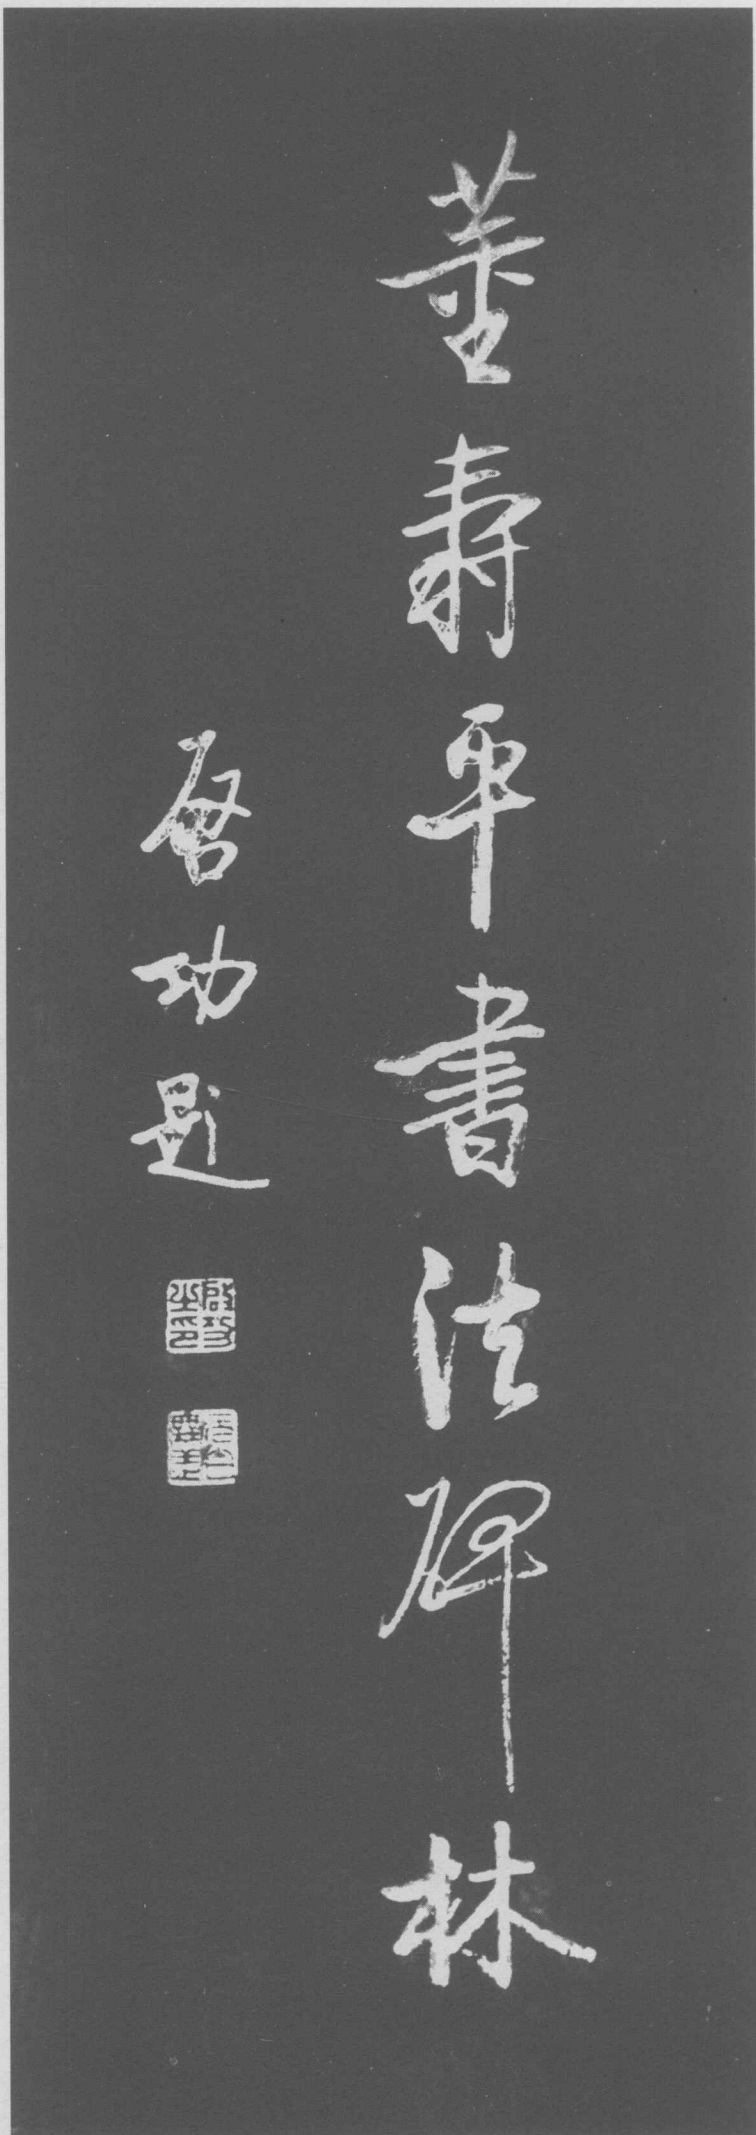 董壽平書法碑林
啓功題